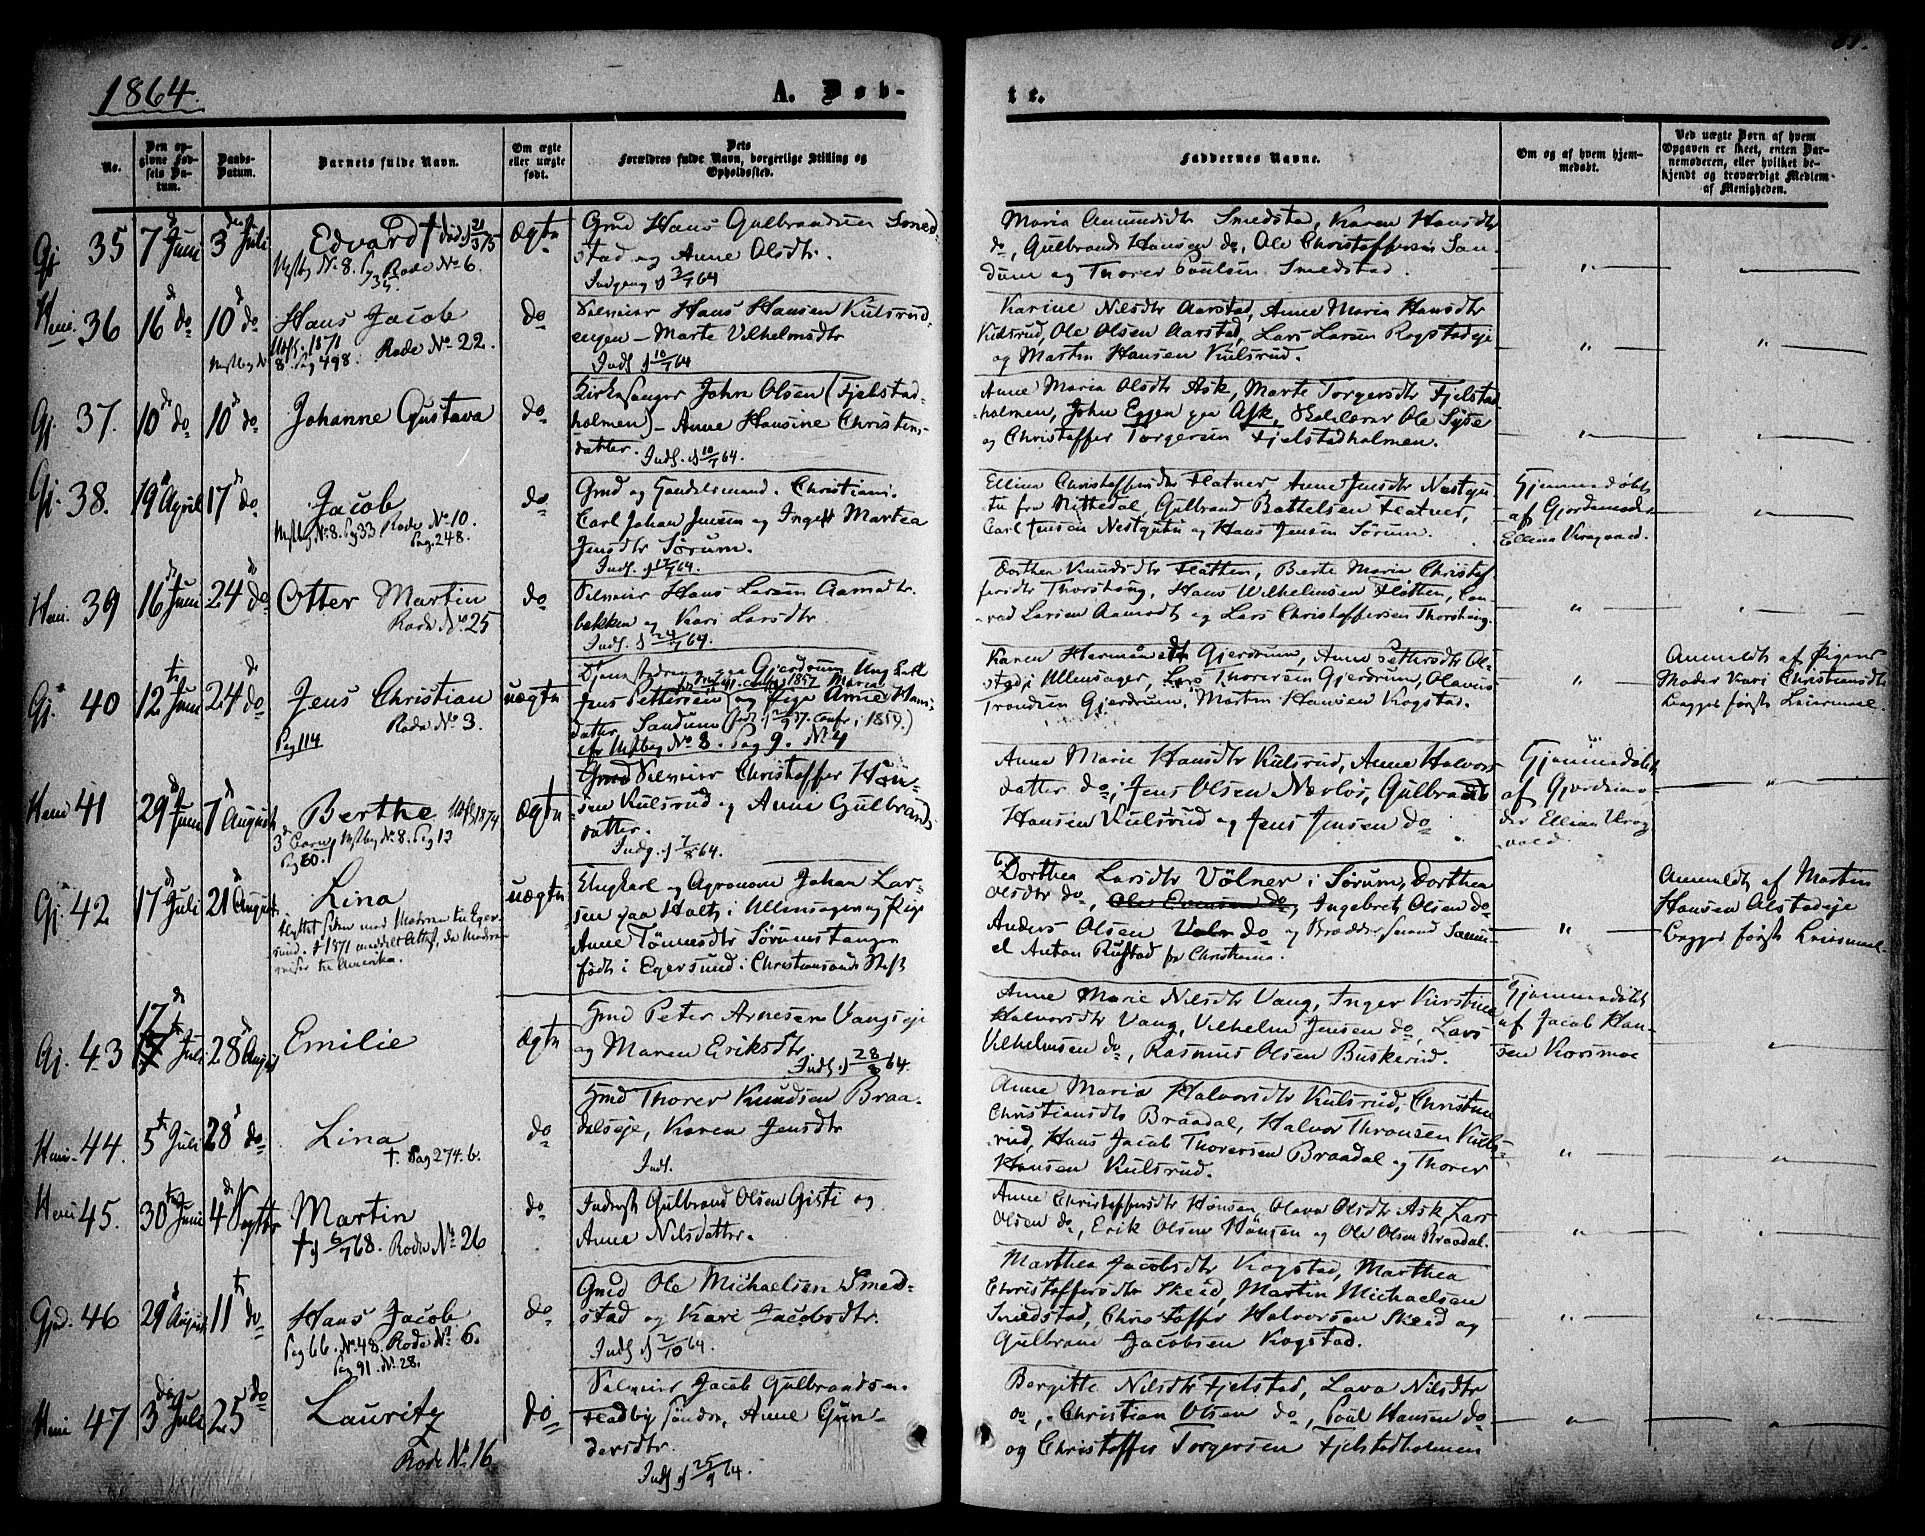 1864.
A. Døb-
te.
No.
Den op-
givne Fød-
sels Da-
tum.
Daabs-
Datum.
Barnets fulde Navn.
Om ægte
eller uægte
født.
Dets
Forældres fulde Navn, borgerlige Stilling og
Opholdssted.
Faddernes Navne.
Om og af hvem hjem-
medøbt.
Ved uægte Børn af hvem
Opgaven er skeet, enten Bar-
nemoderen, eller hvilket be-
kjendt og troværdigt Medlem
af Menigheden.
Gj. 35 7de Juni 3die Juli Edvard † død 21/3 75 Ægte
No. 8. Pg 35. Rode No 6.
Gmd Hans Gulbrandsen Smed-
stad og Anne Olsdtr.
Indgang d 3/7 64
Maria Amundsdtr Smedstad, Karen Hansdtr
do, Gulbrand Hansen do, Ole Christoffersen San-
dum og Thorer Poulsen Smedstad.
Hem. 36 16de do 10de do Hans Jacob do
1871 Rode No 22.
8. Pg 498.
Selveier Hans Hansen Kulsrud-
engen - Marte Vilhelmsdtr
Indl. d 10/7 64
Karine Nilsdtr Aarstad, Anne Maria Hansdtr
Kulsrud, Ole Olsen Aarstad, Lars Larsen Rogstadeje
og Martin Hansen Kulsrud.
Gj. 37. 10de do 10de do Johanne Gustava do
Kirkesanger John Olsen (Fjelstad-
holmen) - Anne Hansine Christens-
datter. Indl. d 10/7 64.
Anne Maria Olsdtr Ask, Marte Torgersdtr Fjelstad
holmen, John Eggen paa Ask, Skolelærer Ole Syse
og Christoffer Torgersen Fjelstadholmen.
Gj. 38. 19de April 17de do Jacob do
No. 8. Pg 33 Rode No 10.
Pag. 248.
Gmd og Handelsmand. Christian
Carl Johan Jensen og Ingeb. Martea
Jensdtr Sørum.
Indl. d 17/7 64.
Ellina Christoffersdtr Flatner Anne Jensdtr Nestgu-
tu fra Nittedal, Gulbrand Battelsen Flatner,
Carl Jensen Nestgutu og Hans Jensen Sørum.
Hjemmedøbt
af Gjordemoder
Ellina Kragvaed.
Hem. 39 16de Juni 24de do Otter Martin do
Rode No 25
Selveier Hans Larsen Aamodt-
bekken og Kari Larsdtr.
Indl. d 24/7 64.
Dorthea Knudsdtr Flatten, Berte Maria Christof
fersdtr Thorshaug, Hans Wilhelmsen Flatten, Con-
rad Larsen Aamodt og Lars Christoffersen Thorshaug.
Gj. 40 12te Juni 24de do Jens Christian uægte
Rode No 3.
Pag 114
Gjerdrum Ungkarl
Jens Pettersen og Pige Anne Hans-
datter Sandum Conf. i 1859.)
No 8. Pag 9. N 4
Karen Hermansdtr Gjerdrum, Anne Pettersdtr Ol-
stad i Ullensager, Lars Thorersen Gjerdrum, Olavus
Trondsen Gjerdrum, Martin Hansen Kogstad.
Anmeldt af Pigens
Moder Kari Christiansdtr
Begges første Leiermaal.
Hem 41 29de Juni 7de August Berthe 1874 Ægte
No 8. Pag 13
Pag 80.
Gmd Selveier Christoffer Han-
sen Kulsrud og Anne Gulbrands
datter.
Indg. d 7/8 64.
Anne Marie Hansdtr Kulsrud, Anne Halvors
datter do, Jens Olsen Nærløs, Gulbrand
Hansen Kulsrud og Jens Jensen do
Hjemmedøbt
af Gjordemo-
der Ellina Krag
vald.
Gj. 42 17de Juli 21de August Lina uægte
flyttet siden med Moderen til Eger-
sund. I 1871 meddelt Attest, da Moderen
reiser til Amerika.
Ungkarl og Agronom Johan Lar-
sen paa Holt i Ullensager og Pige
Anne Tønnesdtr Sørumstangen
født i Egersund i Christiansands Stift
Dorthea Larsdtr Vølner i Sørum, Dorthea
Olsdtr do, Ole Evensen do, Ingebret Olsen do
Anders Olsen Voln do og Bræddersmand Samu-
el Anton Rustad fr Christiania.
Anmeldt af Martin
Hansen Alstadeje
Begges første Leiermaal
Gj. 43 17de Juli 28de August Emilie Ægte
Gmd Peter Arnesen Vangseje
og Maren Eriksdtr
Indl. d 28/8 64.
Anne Marie Nilsdtr Vang, Inger Kirstina
Halvorsdtr Vang, Vilhelm Jensen do, Lars
Vilhelmsen do, Rasmus Olsen Buskerud.
Hjemmedøbt
af Jacob Han-
sen Korsmoe
Hem. 44. 5te Juli 28de do Lina do
†. Pag 274. 6.
Gmd Thorer Knudsen Braa-
dalseje, Karen Jensdtr
Indl.
Anne Maria Halvorsdtr Kulsrud, Christine
Christiansdtr Braadal, Halvor Thronsen Kuls-
rud, Hans Jacob Thorersen Braadal og Thorer
Hansen Kulsrud.
Hem 45. 30te Juni 4de Septbr Martin do
† d 6/7 68. Rode No 26
Inderst Gulbrand Olsen Gisti og
Anne Nilsdatter.
Anne Christoffersdtr Hønsen, Olava Olsdtr Ask, Lars
Olsen do, Erik Olsen Hønsen og Ole Olsen Braadal.
Gjd. 46 29de August 11te do Hans Jacob do
Pag 66. No 48. Rode No 6.
Pag 91. No 28.
Gmd Ole Michaelsen Smed-
stad og Kari Jacobsdtr.
Indl. d 2/10 64.
Marthea Jacobsdtr Kogstad, Marthea
Christoffersdtr Skeid, Martin Michaelsen
Smedstad, Christoffer Halvorsen Skeid og
Gulbrand Jacobsen Kogstad.
Hem 47 3die Juli 25de do Lauritz do
Rode No 16
Selveier Jacob Gulbrandsen
Fladby søndre, Anne Gun-
dersdtr.
Indl. d 25/9 64.
Bergitte Nilsdtr Fjelstad, Lava Nilsdtr
do, Christian Olsen do, Poul Hansen do
og Christoffer Torgersen Fjelstadholmen